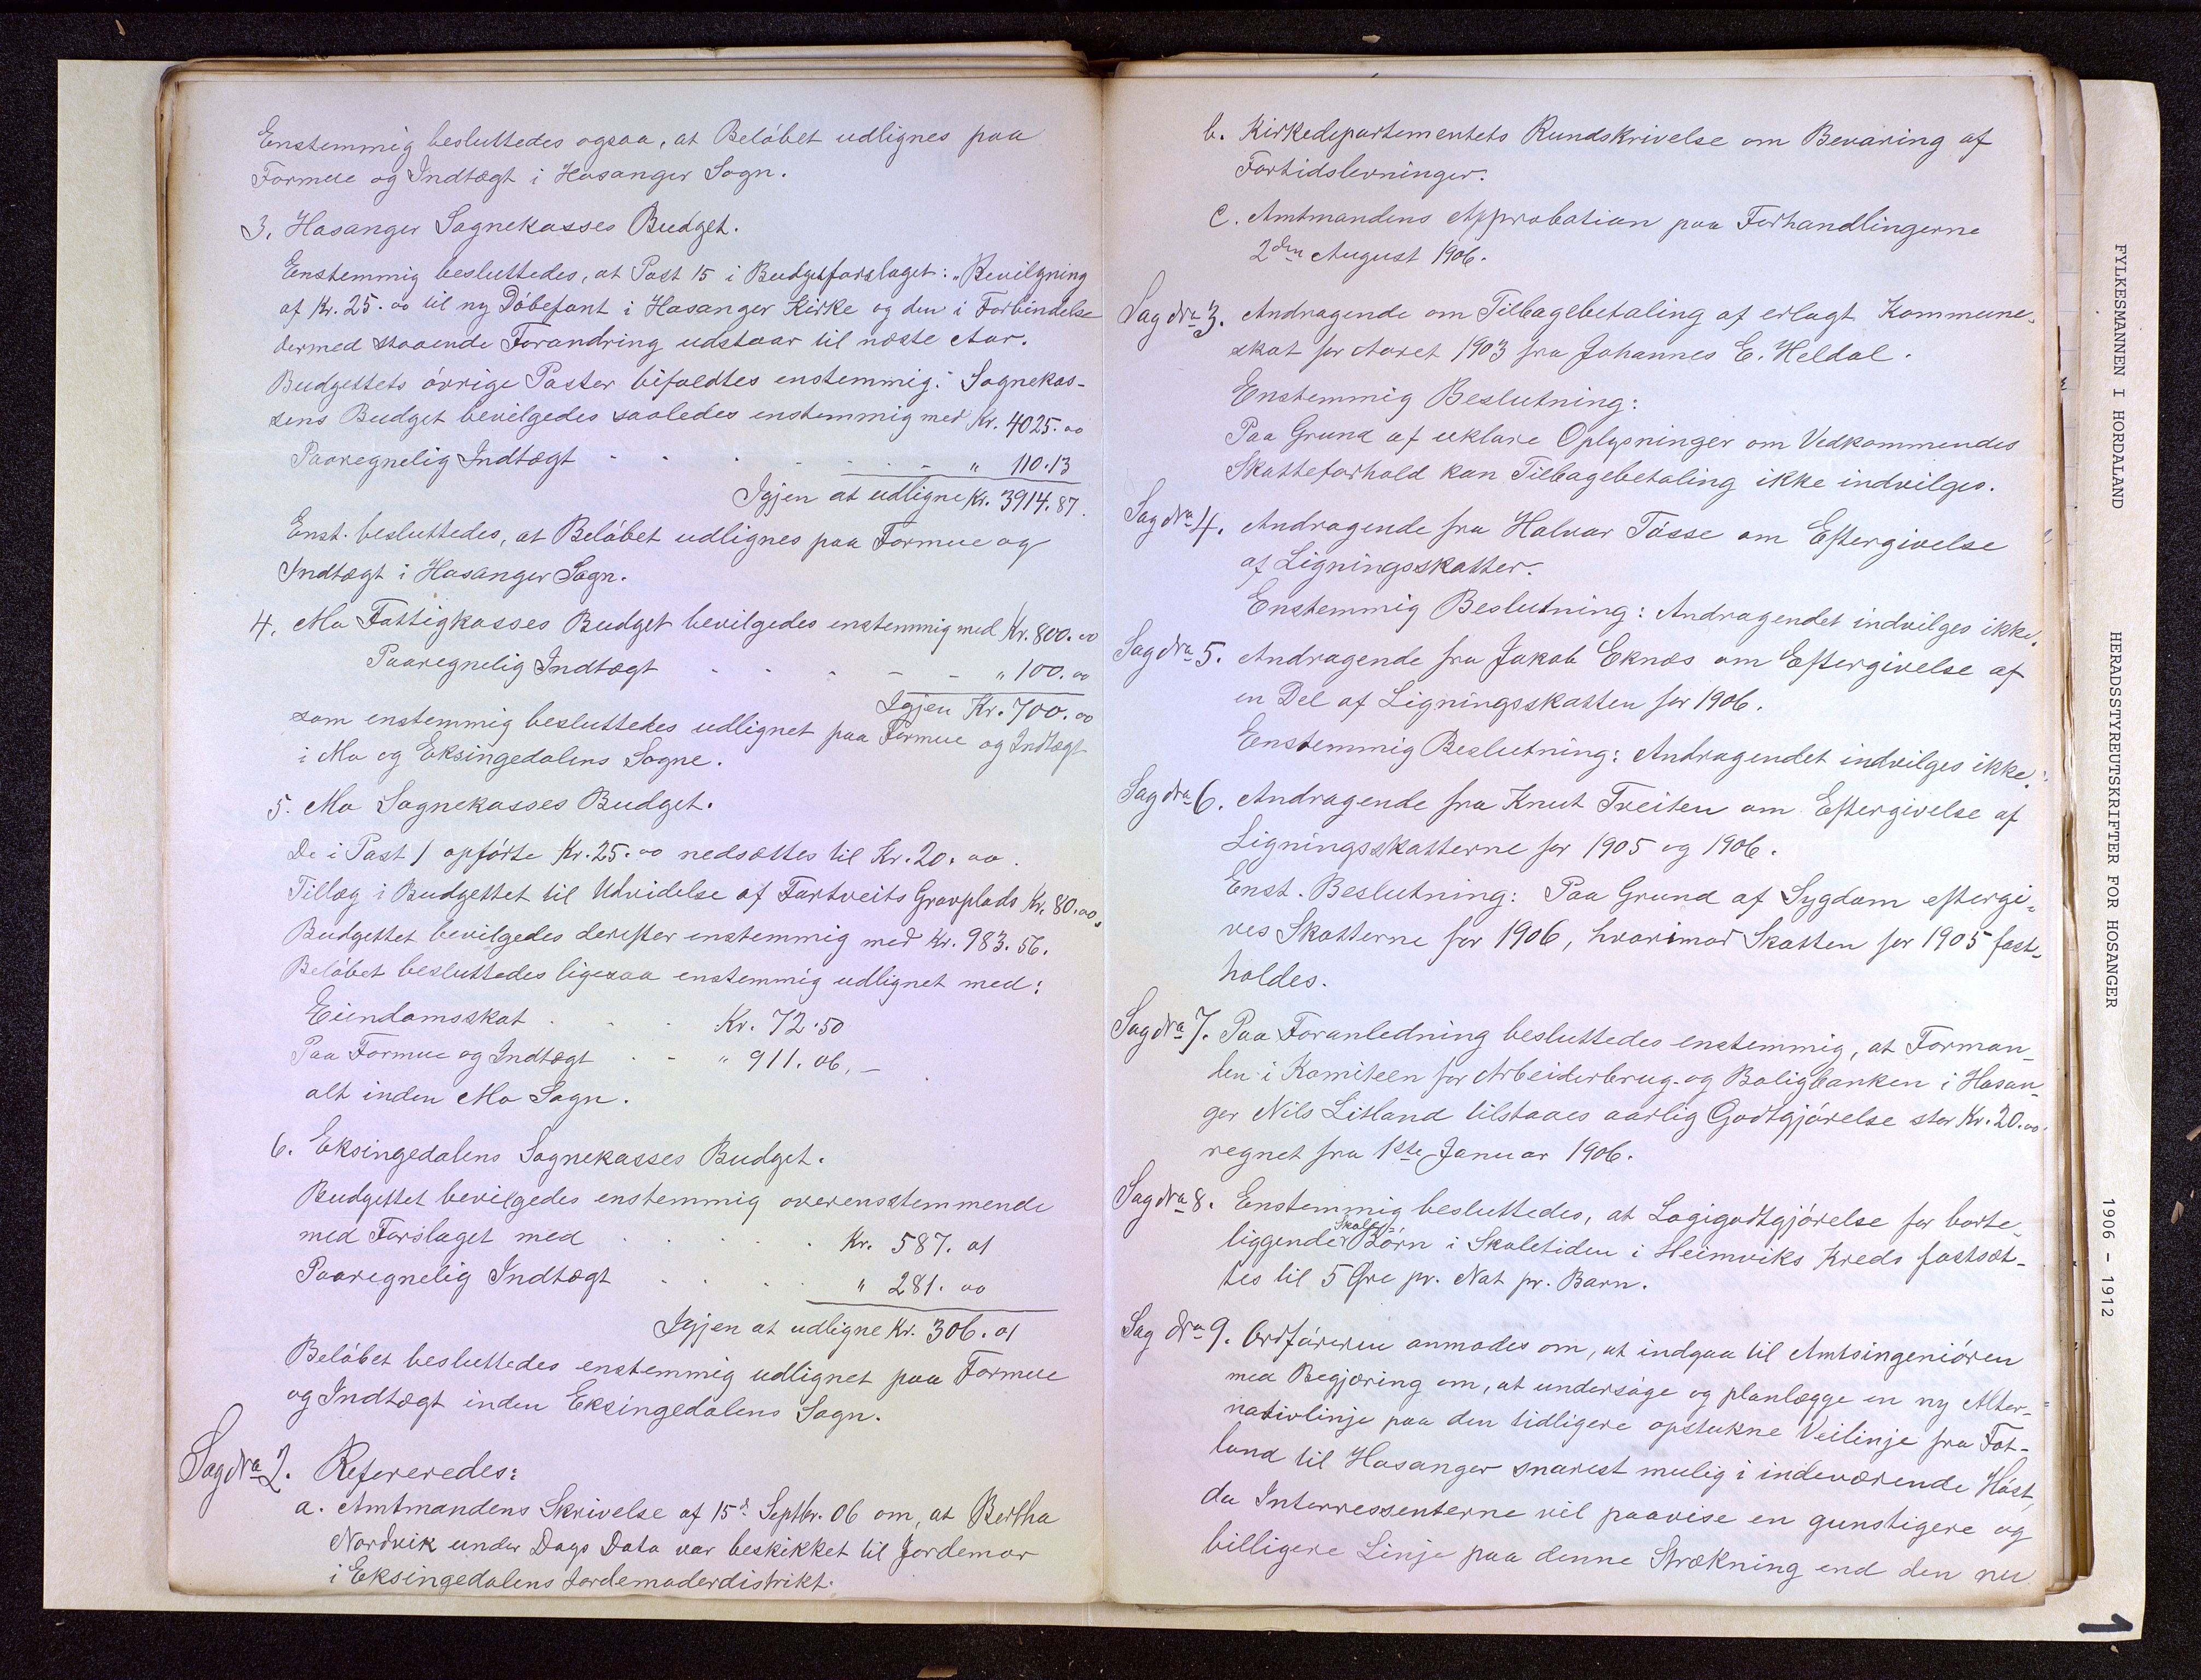 Enstemmig besluttedes ogsaa, at Beløbet udlignes paa
Formue og Indtægt i Hosanger Sogn.
3. Hosanger Sognekasses Budget.
Enstemmig besluttedes, at Post 15 i Budgetforslaget: „Bevilgning
af Kr. 25.00 til ny Døbefont i Hosanger Kirke og den i Forbindelse
dermed staaende Forandring udstaar til næste Aar.
Budgettets øvrige Poster bifaldtes enstemmig." Sognekas-
sens Budget bevilgedes saaledes enstemmig med Kr. 4025.00
Paaregnelig Indtægt - - - - - " 110.13
Igjen at udligne Kr. 3914.87.
Enst. besluttedes, at Beløbet udlignes paa Formue og
Indtægt i Hosanger Sogn.
4. Mo Fattigkasses Budget bevilgedes enstemmig med Kr. 800.00
Paaregnelig Indtægt - - - - - " 100.00
Igjen Kr. 700.00
som enstemmig besluttedes udlignet paa Formue og Indtægt
i Mo og Eksingedalens Sogne.
5. Mo Sognekasses Budget.
De i Post 1 opførte Kr. 25.00 nedsættes til Kr. 20.00.
Tillæg i Budgettet til Udvidelse af Fartveits Gravplads Kr. 80.00.
Budgettet bevilgedes derefter enstemmig med Kr. 983.56.
Beløbet besluttedes ligesaa enstemmig udlignet med:
Eiendomsskat - - - Kr. 72.50
Paa Formue og Indtægt - - " 911.06.-
alt inden Mo Sogn.
6. Eksingedalens Sognekasses Budget.
Budgettet bevilgedes enstemmig overensstemmende
med Forslaget med . . . . . Kr. 587.01
Paaregnelig Indtægt . . . . " 281.00
Igjen at udligne Kr. 306.01
Beløbet besluttedes enstemmig udlignet paa Formue
og Indtægt inden Eksingedalens Sogn.
Sag No 2. Refereredes:
a. Amtmandens Skrivelse af 15d Septbr. 06 om, at Bertha
Nordvik under Dags Dato var beskikket til Jordemor
i Eksingedalens Jordemoderdistrikt.
b. Kirkedepartementets Rundskrivelse om Bevaring af
Fortidslevninger.
c. Amtmandens Approbation paa Forhandlingerne
2den August 1906.
Sag No 3. Andragende om Tilbagebetaling af erlagt Kommune-
skat for Aaret 1903 fra Johannes E. Heldal.
Enstemmig Beslutning:
Paa Grund af uklare Oplysninger om Vedkommendes
Skatteforhold kan Tilbagebetaling ikke indvilges.
Sag No 4. Andragende fra Halvar Tøsse om Eftergivelse
af Ligningsskatter.
Enstemmig Beslutning: Andragendet indvilges ikke.
Sag No 5. Andragende fra Jakob Eknæs om Eftergivelse af
en Del af Ligningsskatten for 1906.
Enstemmig Beslutning: Andragendet indvilges ikke.
Sag No 6. Andragende fra Knut Tveiten om Eftergivelse af
Ligningsskatterne for 1905 og 1906.
Enst. Beslutning: Paa Grund af Sygdom eftergi-
ves Skatterne for 1906, hvorimod Skatten for 1905 fast-
holdes.
Sag No 7. Paa Foranledning besluttedes enstemmig, at Forman-
den i Komiteen for Arbeiderbrug- og Boligbanken i Hosan-
ger Nils Litland tilstaaes aarlig Godtgjørelse stor Kr. 20.00.
regnet fra 1ste Januar 1906.
Sag No 8. Enstemmig besluttedes, at Logigodtgjørelse for borte-
liggende Skole-Børn i Skoletiden i Heimviks Kreds fastsæt-
tes til 5 Øre pr. Nat pr. Barn.
Sag No 9. Ordføreren anmodes om, at indgaa til Amtsingeniøren
med Begjæring om, at undersøge og planlægge en ny Alter-
nativlinje paa den tidligere opstukne Veilinje fra Fot-
land til Hosanger snarest mulig i indeværende Høst,
da Interressenterne vil paavise en gunstigere og
billigere Linje paa denne Strækning end den nu
FYLKESMANNEN I HORDALAND HERADSSTYREUTSKRIFTER FOR HOSANGER 1906 - 1912
1